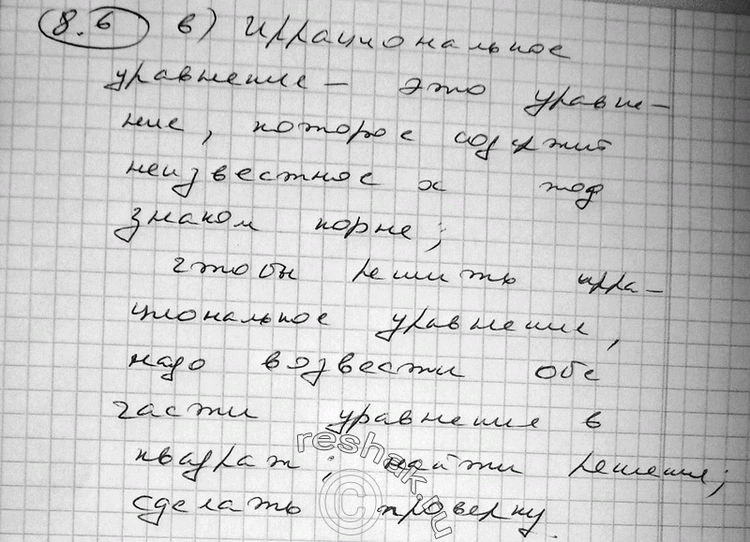 8.6 в) Иррациональное
уравнение — это уравне-
ние, которое содержит
неизвестное x под
знаком корне;
чтобы решить ирра-
циональное уравнение,
надо возвести обе
части уравнения в
квадрат; найти решения;
сделать проверку.
reshak.ru
©